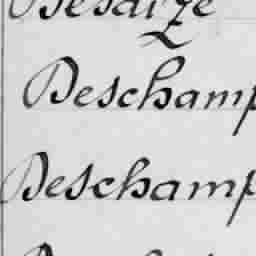 Desaize
Deschamp
Deschamp